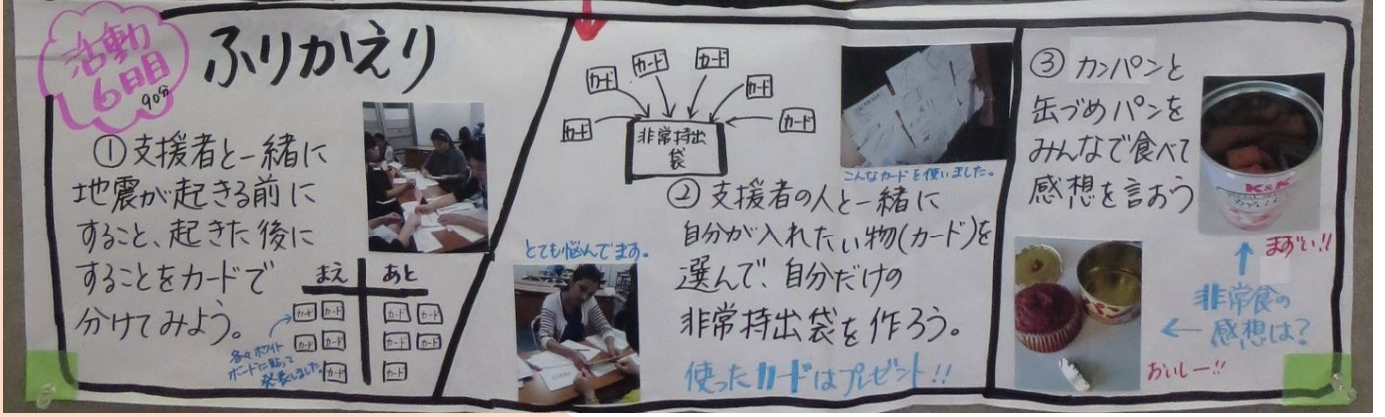 活動
6日目
90分
ふりかえり
①支援者と一緒に
地震が起きる前に
すること、起きた後に
することをカードで
分けてみよう。
まえ あと
カード カード カード カード
カード カード カード カード
カード カード
各々ホワイト
ボードに貼って
発表しました
カード
カード
カード
カード
カード
カード
非常持出
袋
こんなカードを使いました。
②支援者の人と一緒に
自分が入れたい物(カード)を
選んで、自分だけの
非常持出袋を作ろう。
とても悩んでます。
使ったカードはプレゼント!!
③カンパンと
缶づめパンを
みんなで食べて
感想を言おう
K&K
カンパン
まずい!!
↑
非常食の
← 感想は?
おいしー!!